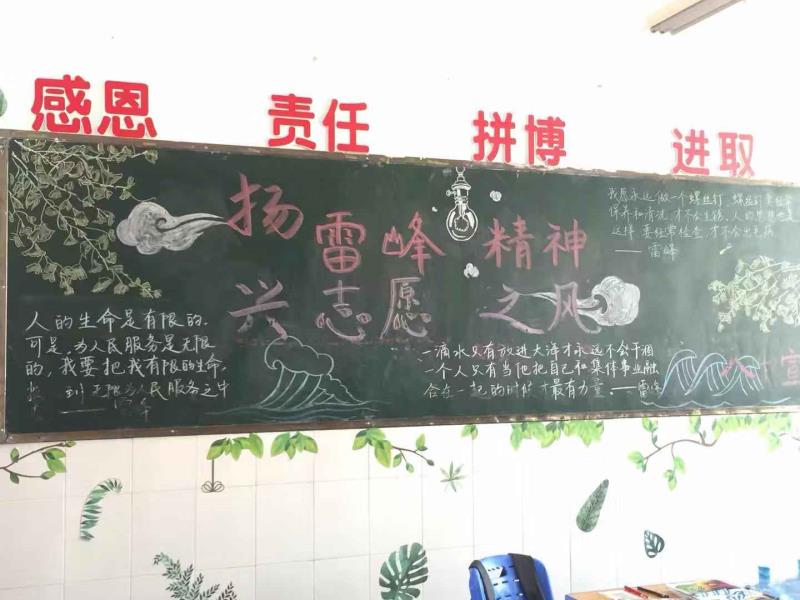 感恩 责任 拼博 进取
扬雷峰精神
兴志愿之风
人的生命是有限的.
可是,为人民服务是无限
的,我要把我有限的生命,
到无限为人民服务之中
我愿永远做一个螺丝钉
保养和清洗,才不会生锈.人的思想也是
这样,要经常检查,才不会出毛病
——雷峰
一滴水只有放进大洋才永远不会干涸
一个人只有当他把自己和集体事业融
合在一起的时候才最有力量.——雷峰
八十宣